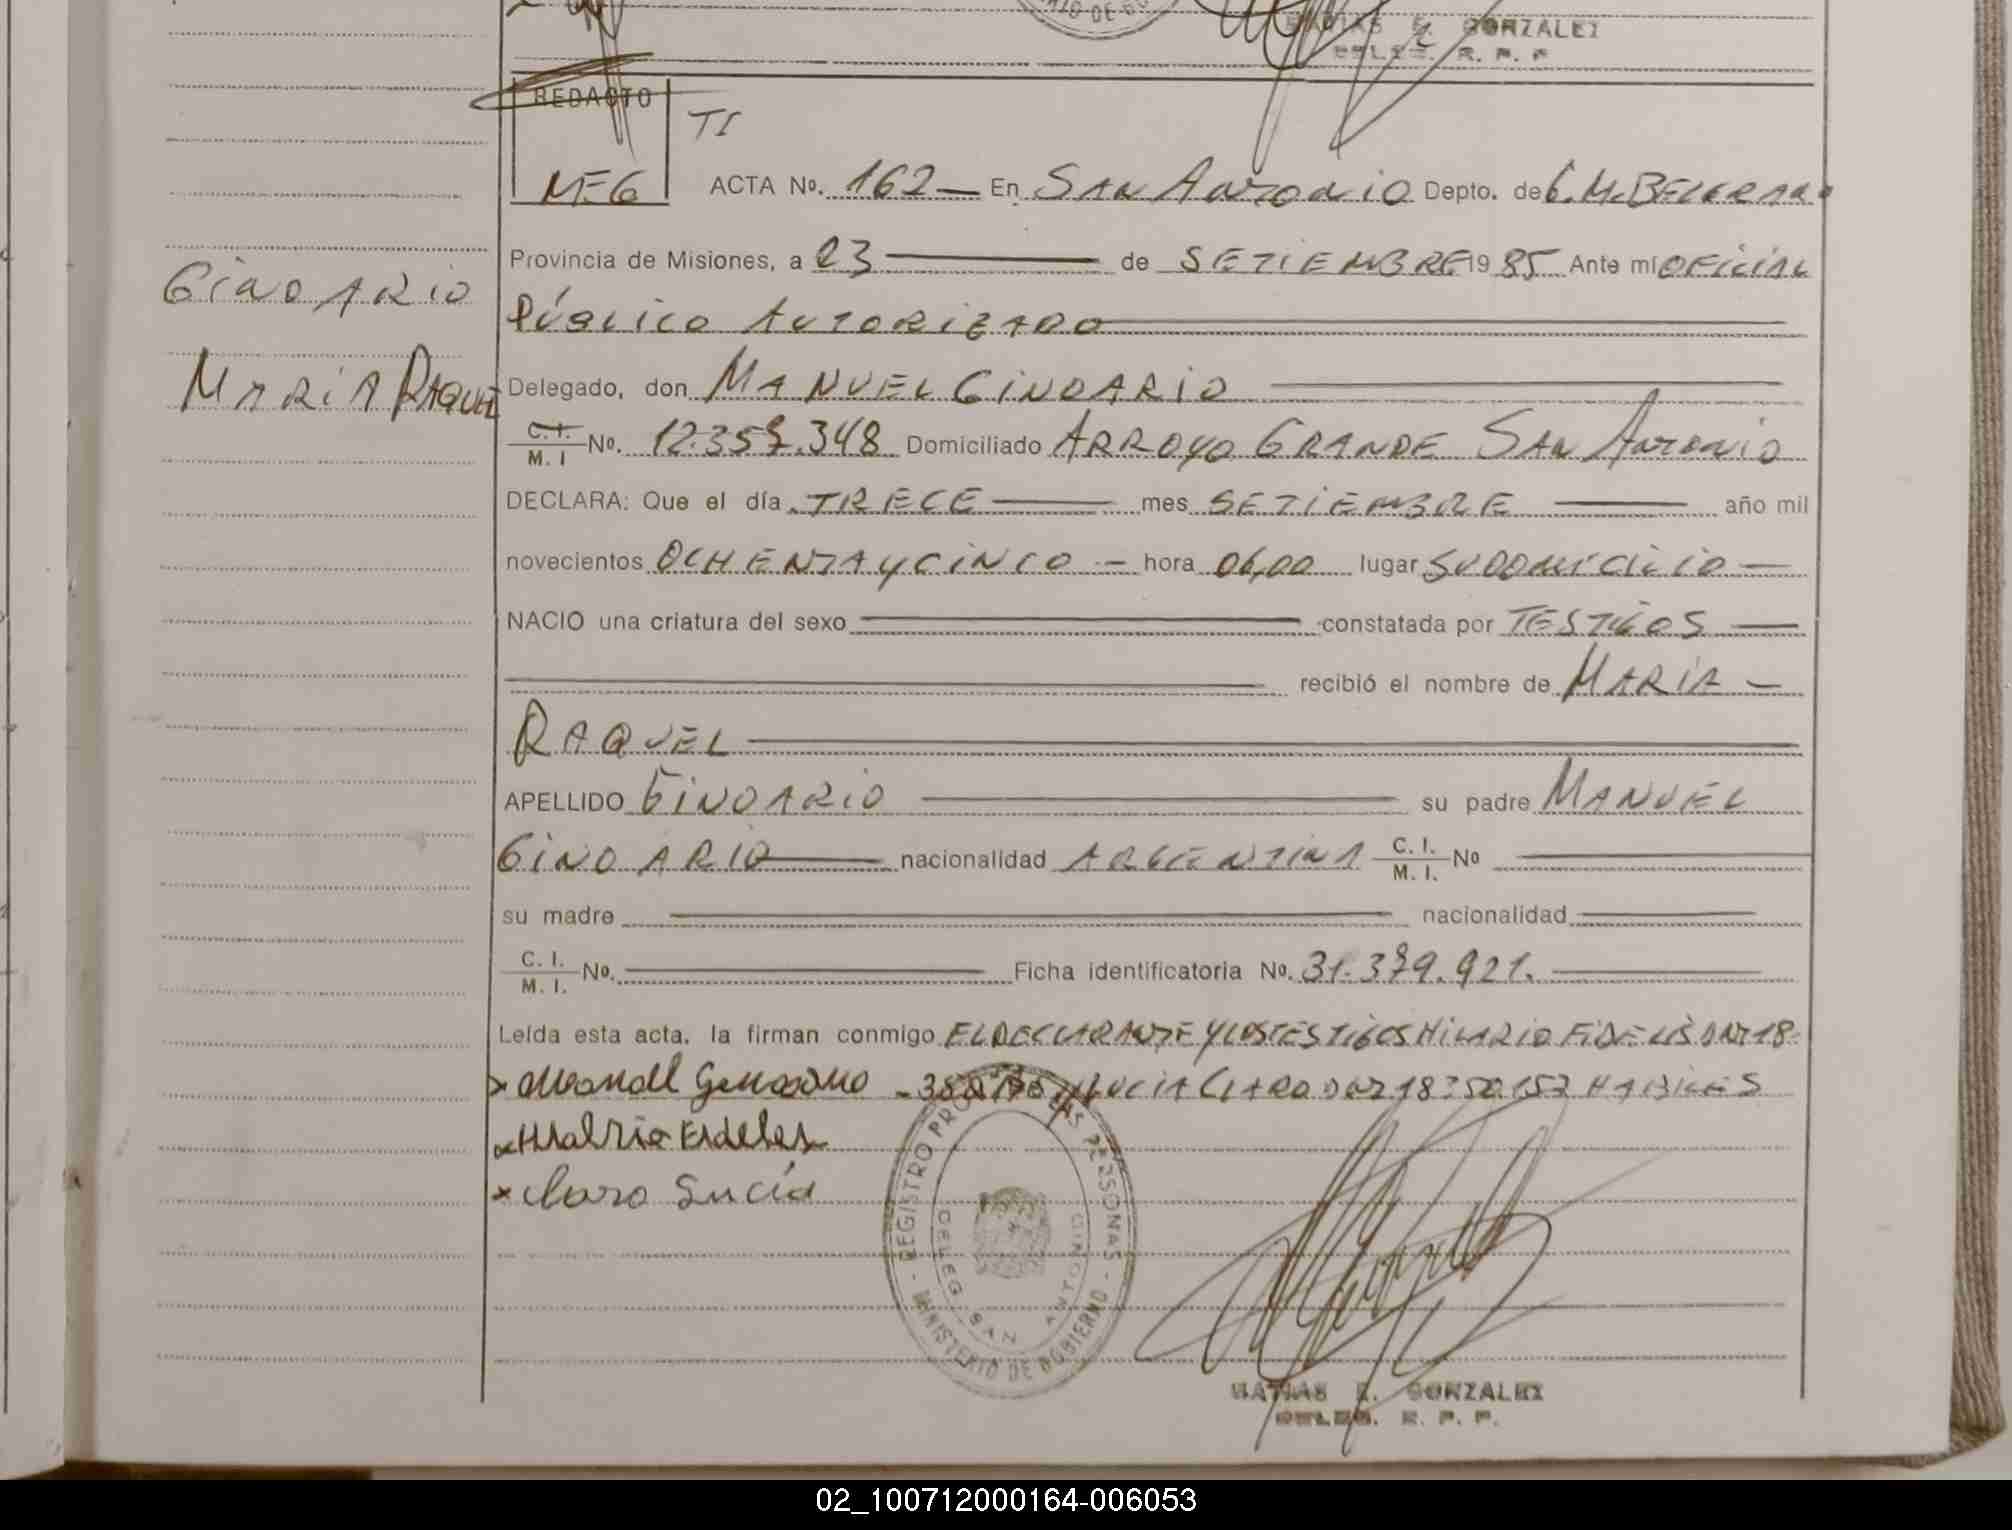 MATIAS E. GONZALEZ
DELEG. R. P. P.
REDACTO
TI
MEG
ACTA No. 162 En SAN ANTONIO Depto. de G. M. BELGRANO
Provincia de Misiones, a 23 de SETIEMBRE 1985 Ante mí OFICIAL
PÚBLICO AUTORIZADO
GINDARIO
MARÍA RAQUEL
Delegado, don MANUEL GINDARIO
C. I. / M. I No. Domiciliado ARROYO GRANDE SAN ANTONIO
DECLARA: Que el día TRECE mes SETIEMBRE año mil
novecientos OCHENTA Y CINCO hora 06,00 lugar SU DOMICILIO
NACIO una criatura del sexo constatada por TESTIGOS
recibió el nombre de MARÍA
RAQUEL
APELLIDO GINDARIO su padre MANUEL
GINDARIO nacionalidad ARGENTINA C. I. / M. I. No
su madre nacionalidad
C. I. / M. I. No. Ficha identificatoria No. 31.379.921.
Leída esta acta, la firman conmigo EL DECLARANTE Y LOS TESTIGOS HILARIO FIDELIS DNI 18-
LUCIA CLARO DNI 18350157 HABILES
Claro Lucía
REGISTRO PROV. DE LAS PERSONAS
DELEG. SAN ANTONIO
MINISTERIO DE GOBIERNO
MATIAS E. GONZALEZ
DELEG. R. P. P.
02_100712000164-006053